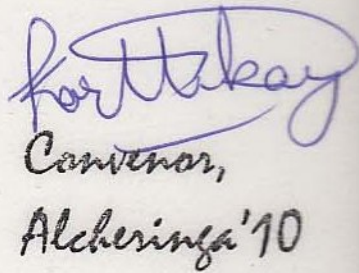 Karttikay
Convenor,
Alcheringa'10